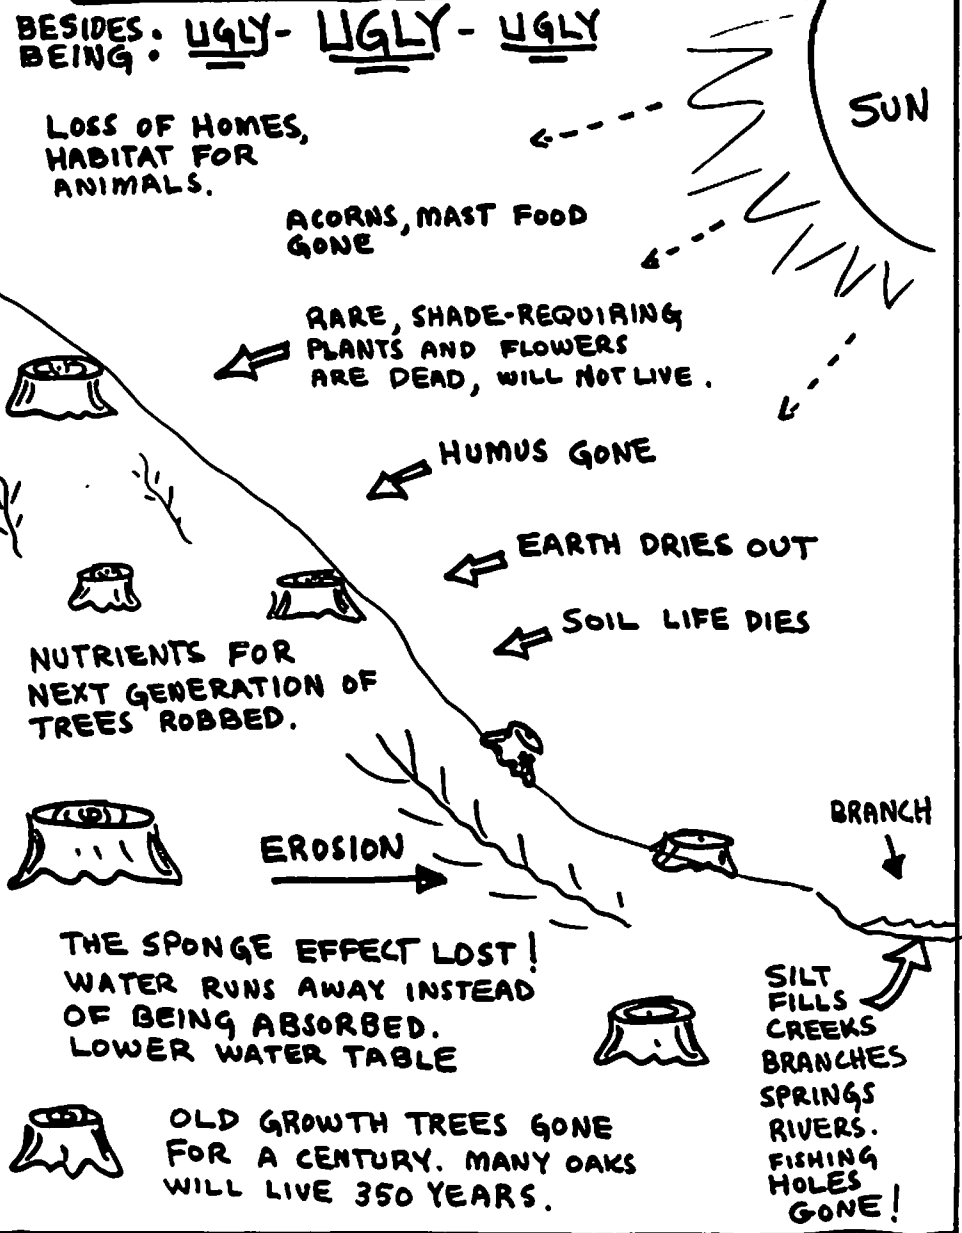 BESIDES. UGLY- UGLY- UGLY
BEING.
SUN
LOSS OF HOMES,
HABITAT FOR
ANIMALS.
ACORNS, MAST FOOD
GONE
RARE, SHADE-REQUIRING
PLANTS AND FLOWERS
ARE DEAD, WILL NOT LIVE.
HUMUS GONE
EARTH DRIES OUT
SOIL LIFE DIES
NUTRIENTS FOR
NEXT GENERATION OF
TREES ROBBED.
BRANCH
EROSION
THE SPONGE EFFECT LOST!
WATER RUNS AWAY INSTEAD
OF BEING ABSORBED.
LOWER WATER TABLE
SILT
FILLS
CREEKS
BRANCHES
SPRINGS
RIVERS.
FISHING
HOLES
GONE!
OLD GROWTH TREES GONE
FOR A CENTURY. MANY OAKS
WILL LIVE 350 YEARS.